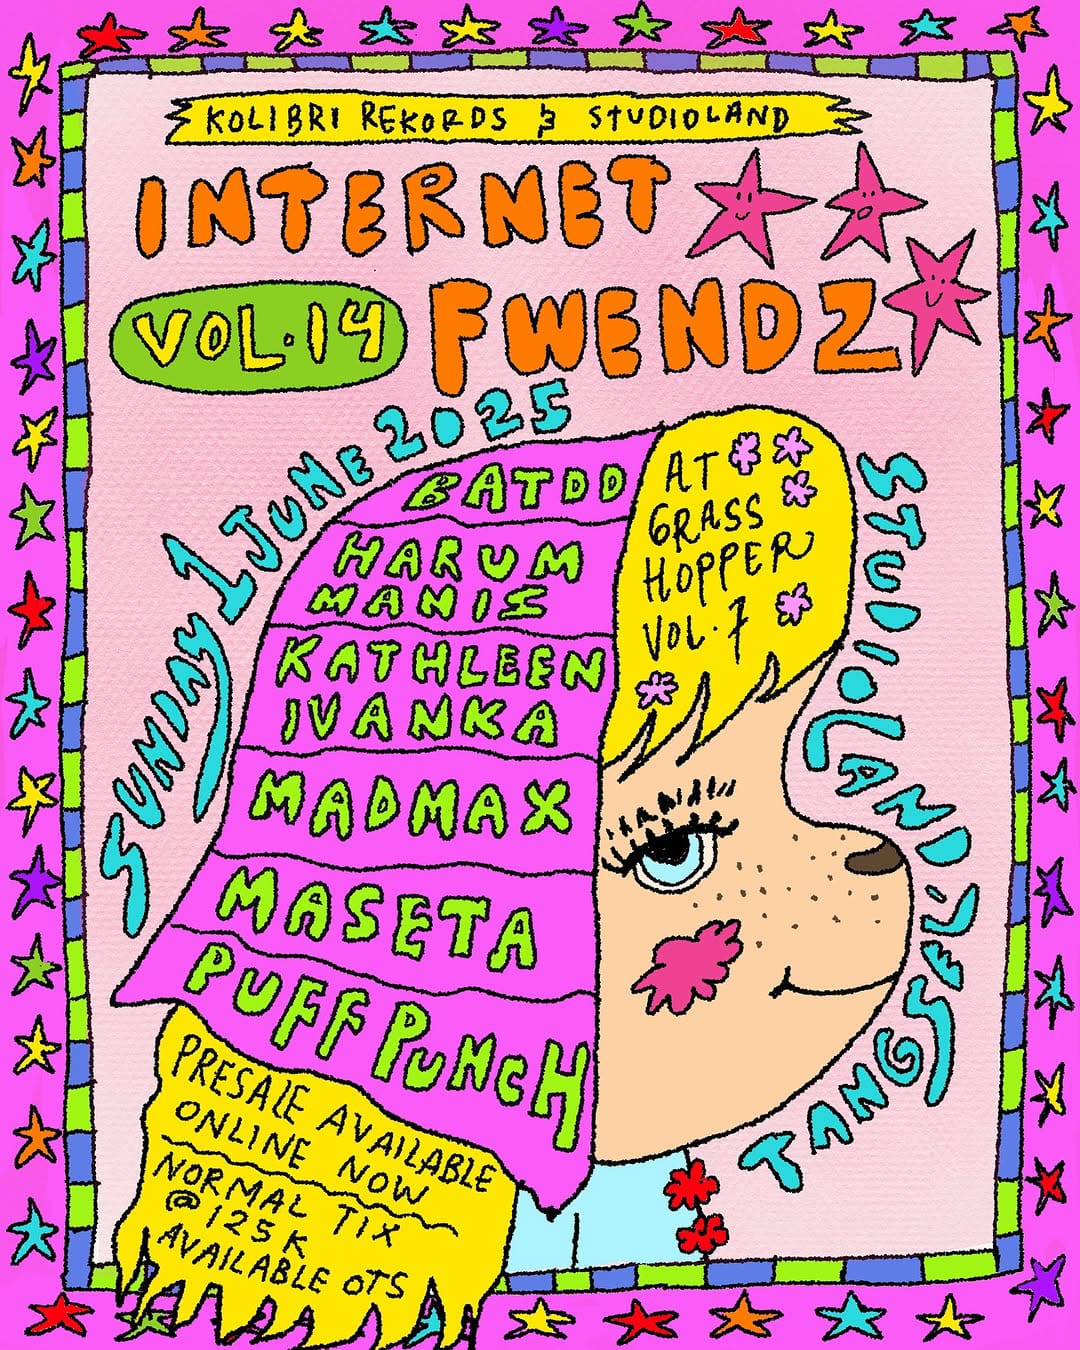 KOLIBRI REKORDS & STUDIOLAND
INTERNET
VOL.14 FWENDZ
SUNDAY 1 JUNE 2025
BATDD
HARUM
MANIS
KATHLEEN
IVANKA
MADMAX
MASETA
PUFF PUNCH
AT
GRASS
HOPPER
VOL.7
STUDIOLAND, JL.
TANGSEL
PRESALE AVAILABLE
ONLINE NOW
NORMAL TIX
@ 125K
AVAILABLE OTS